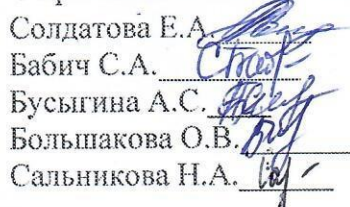 Солдатова Е.А.
Бабич С.А.
Бусыгина А.С.
Большакова О.В.
Сальникова Н.А.